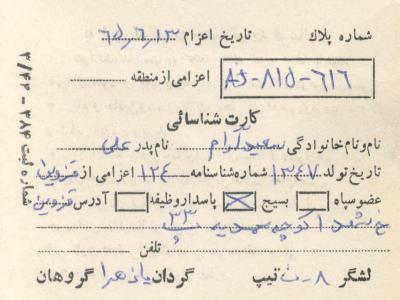 شماره پلاك تاریخ اعزام ۶۵٫۶٫۱۳
AJ-۸۱۵-۶۱۶ اعزامی از منطقه
کارت شناسائی
نام و نام خانوادگی سعید آرام نام پدر علی
تاریخ تولد ۱۳۴۷ شماره شناسنامه ۱۲۴ اعزامی از قزوین
عضو سپاه بسیج پاسدار وظیفه آدرس قزوین
۳۳
تلفن
لشگر ۸-ن تیپ گردان یازهرا گروهان
شماره ثبت ۳۸۴ - ۳/۴۴